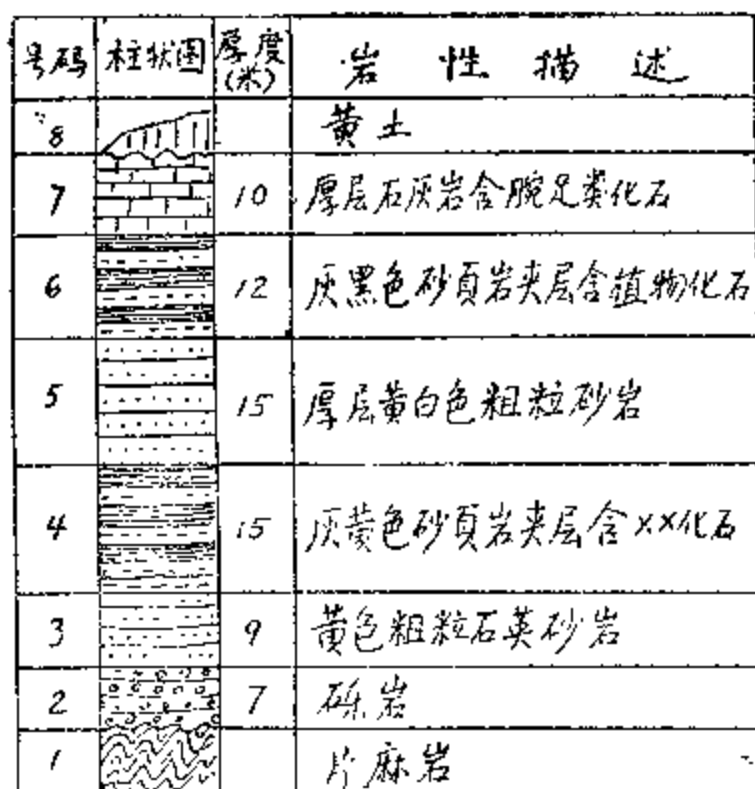 号码 柱状图 厚度(米) 岩性描述
8 黄土
7 10 厚层石灰岩含腕足类化石
6 12 灰黑色砂頁岩夹层含植物化石
5 15 厚层黄白色粗粒砂岩
4 15 灰黄色砂頁岩夹层含××化石
3 9 黄色粗粒石英砂岩
2 7 砾岩
1 片麻岩